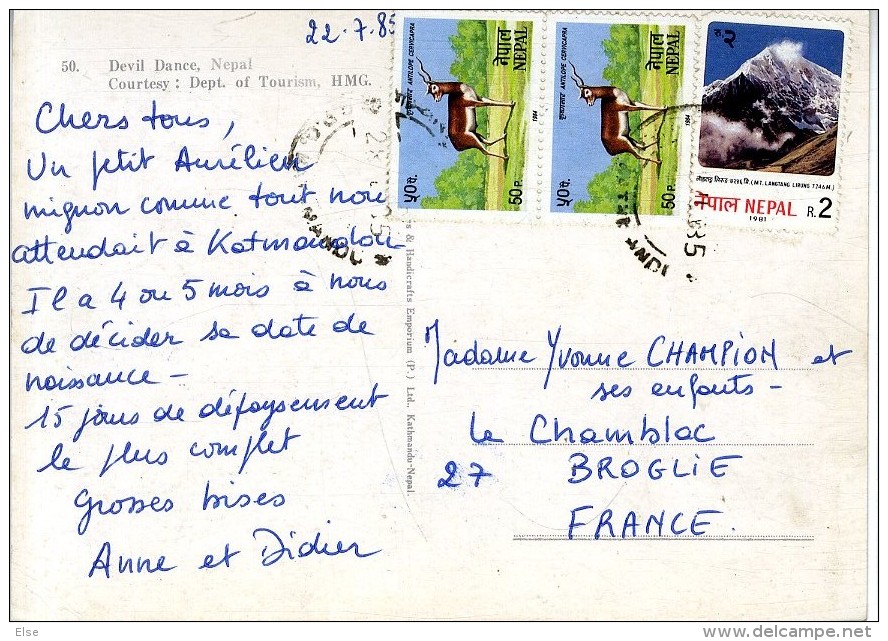 22.7.85
50. Devil Dance, Nepal
Courtesy : Dept. of Tourism, HMG.
Chers tous,
Un petit Aurélien
mignon comme tout nous
attendait à Katmandou
Il a 4 ou 5 mois à nous
de décider sa date de
naissance –
15 jours de dépaysement
le plus complet
Grosses bises
Anne et Didier
& Handicrafts Emporium (P.) Ltd., Kathmandu-Nepal.
कृष्णसार ANTILOPE CERVICAPRA
नेपाल
NEPAL
1984
५०प.
50 P.
कृष्णसार ANTILOPE CERVICAPRA
नेपाल
NEPAL
1984
५०प.
50 P.
रु. २
(MT. LANGTANG LIRUNG 7246M.)
नेपाल NEPAL R. 2
1981
Madame Yvonne CHAMPION et
ses enfants –
Le Chamblac
27 BROGLIE
FRANCE.
Else
www.delcampe.net